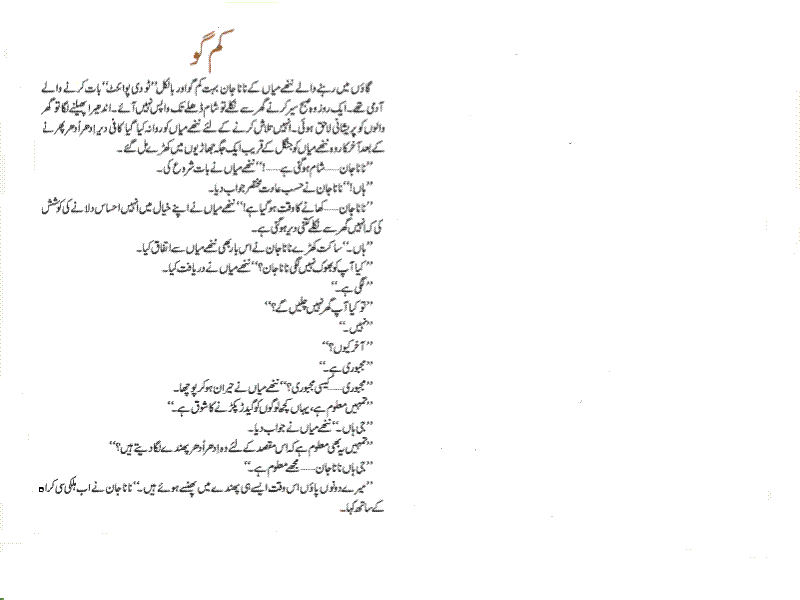 کم گو
گاؤں میں رہنے والے ننھے میاں کے نانا جان بہت کم گو اور بالکل ”ٹو دی پوائنٹ“ بات کرنے والے
آدمی تھے۔ ایک روز وہ صبح سیر کرنے گھر سے نکلے تو شام ڈھلے تک واپس نہیں آئے۔ اندھیرا پھیلنے لگا تو گھر
والوں کو پریشانی لاحق ہوئی۔ انہیں تلاش کرنے کے لئے ننھے میاں کو روانہ کیا گیا کافی دیر اِدھر اُدھر پھرنے
کے بعد آخر کار وہ ننھے میاں کو جنگل کے قریب ایک جگہ جھاڑیوں میں کھڑے مل گئے۔
”نانا جان ...... شام ہو گئی ہے ......!“ ننھے میاں نے بات شروع کی۔
”ہاں!“ نانا جان نے حسب عادت مختصر جواب دیا۔
”نانا جان ...... کھانے کا وقت ہو گیا ہے!“ ننھے میاں نے اپنے خیال میں انہیں احساس دلانے کی کوشش
کی کہ انہیں گھر سے نکلے کتنی دیر ہو گئی ہے۔
”ہاں۔“ ساکت کھڑے نانا جان نے اس بار بھی ننھے میاں سے اتفاق کیا۔
”کیا آپ کو بھوک نہیں لگی نانا جان؟“ ننھے میاں نے دریافت کیا۔
”لگی ہے۔“
”تو کیا آپ گھر نہیں چلیں گے؟“
”نہیں۔“
”آخر کیوں؟“
”مجبوری ہے۔“
”مجبوری ...... کیسی مجبوری؟“ ننھے میاں نے حیران ہو کر پوچھا۔
”تمہیں معلوم ہے، یہاں کچھ لوگوں کو گیدڑ پکڑنے کا شوق ہے۔“
”جی ہاں۔“ ننھے میاں نے جواب دیا۔
”تمہیں یہ بھی معلوم ہے کہ اس مقصد کے لئے وہ اِدھر اُدھر پھندے لگا دیتے ہیں؟“
”جی ہاں نانا جان ...... مجھے معلوم ہے۔“
”میرے دونوں پاؤں اس وقت ایسے ہی پھندے میں پھنسے ہوئے ہیں۔“ نانا جان نے اب ہلکی سی کراہ
کے ساتھ کہا۔